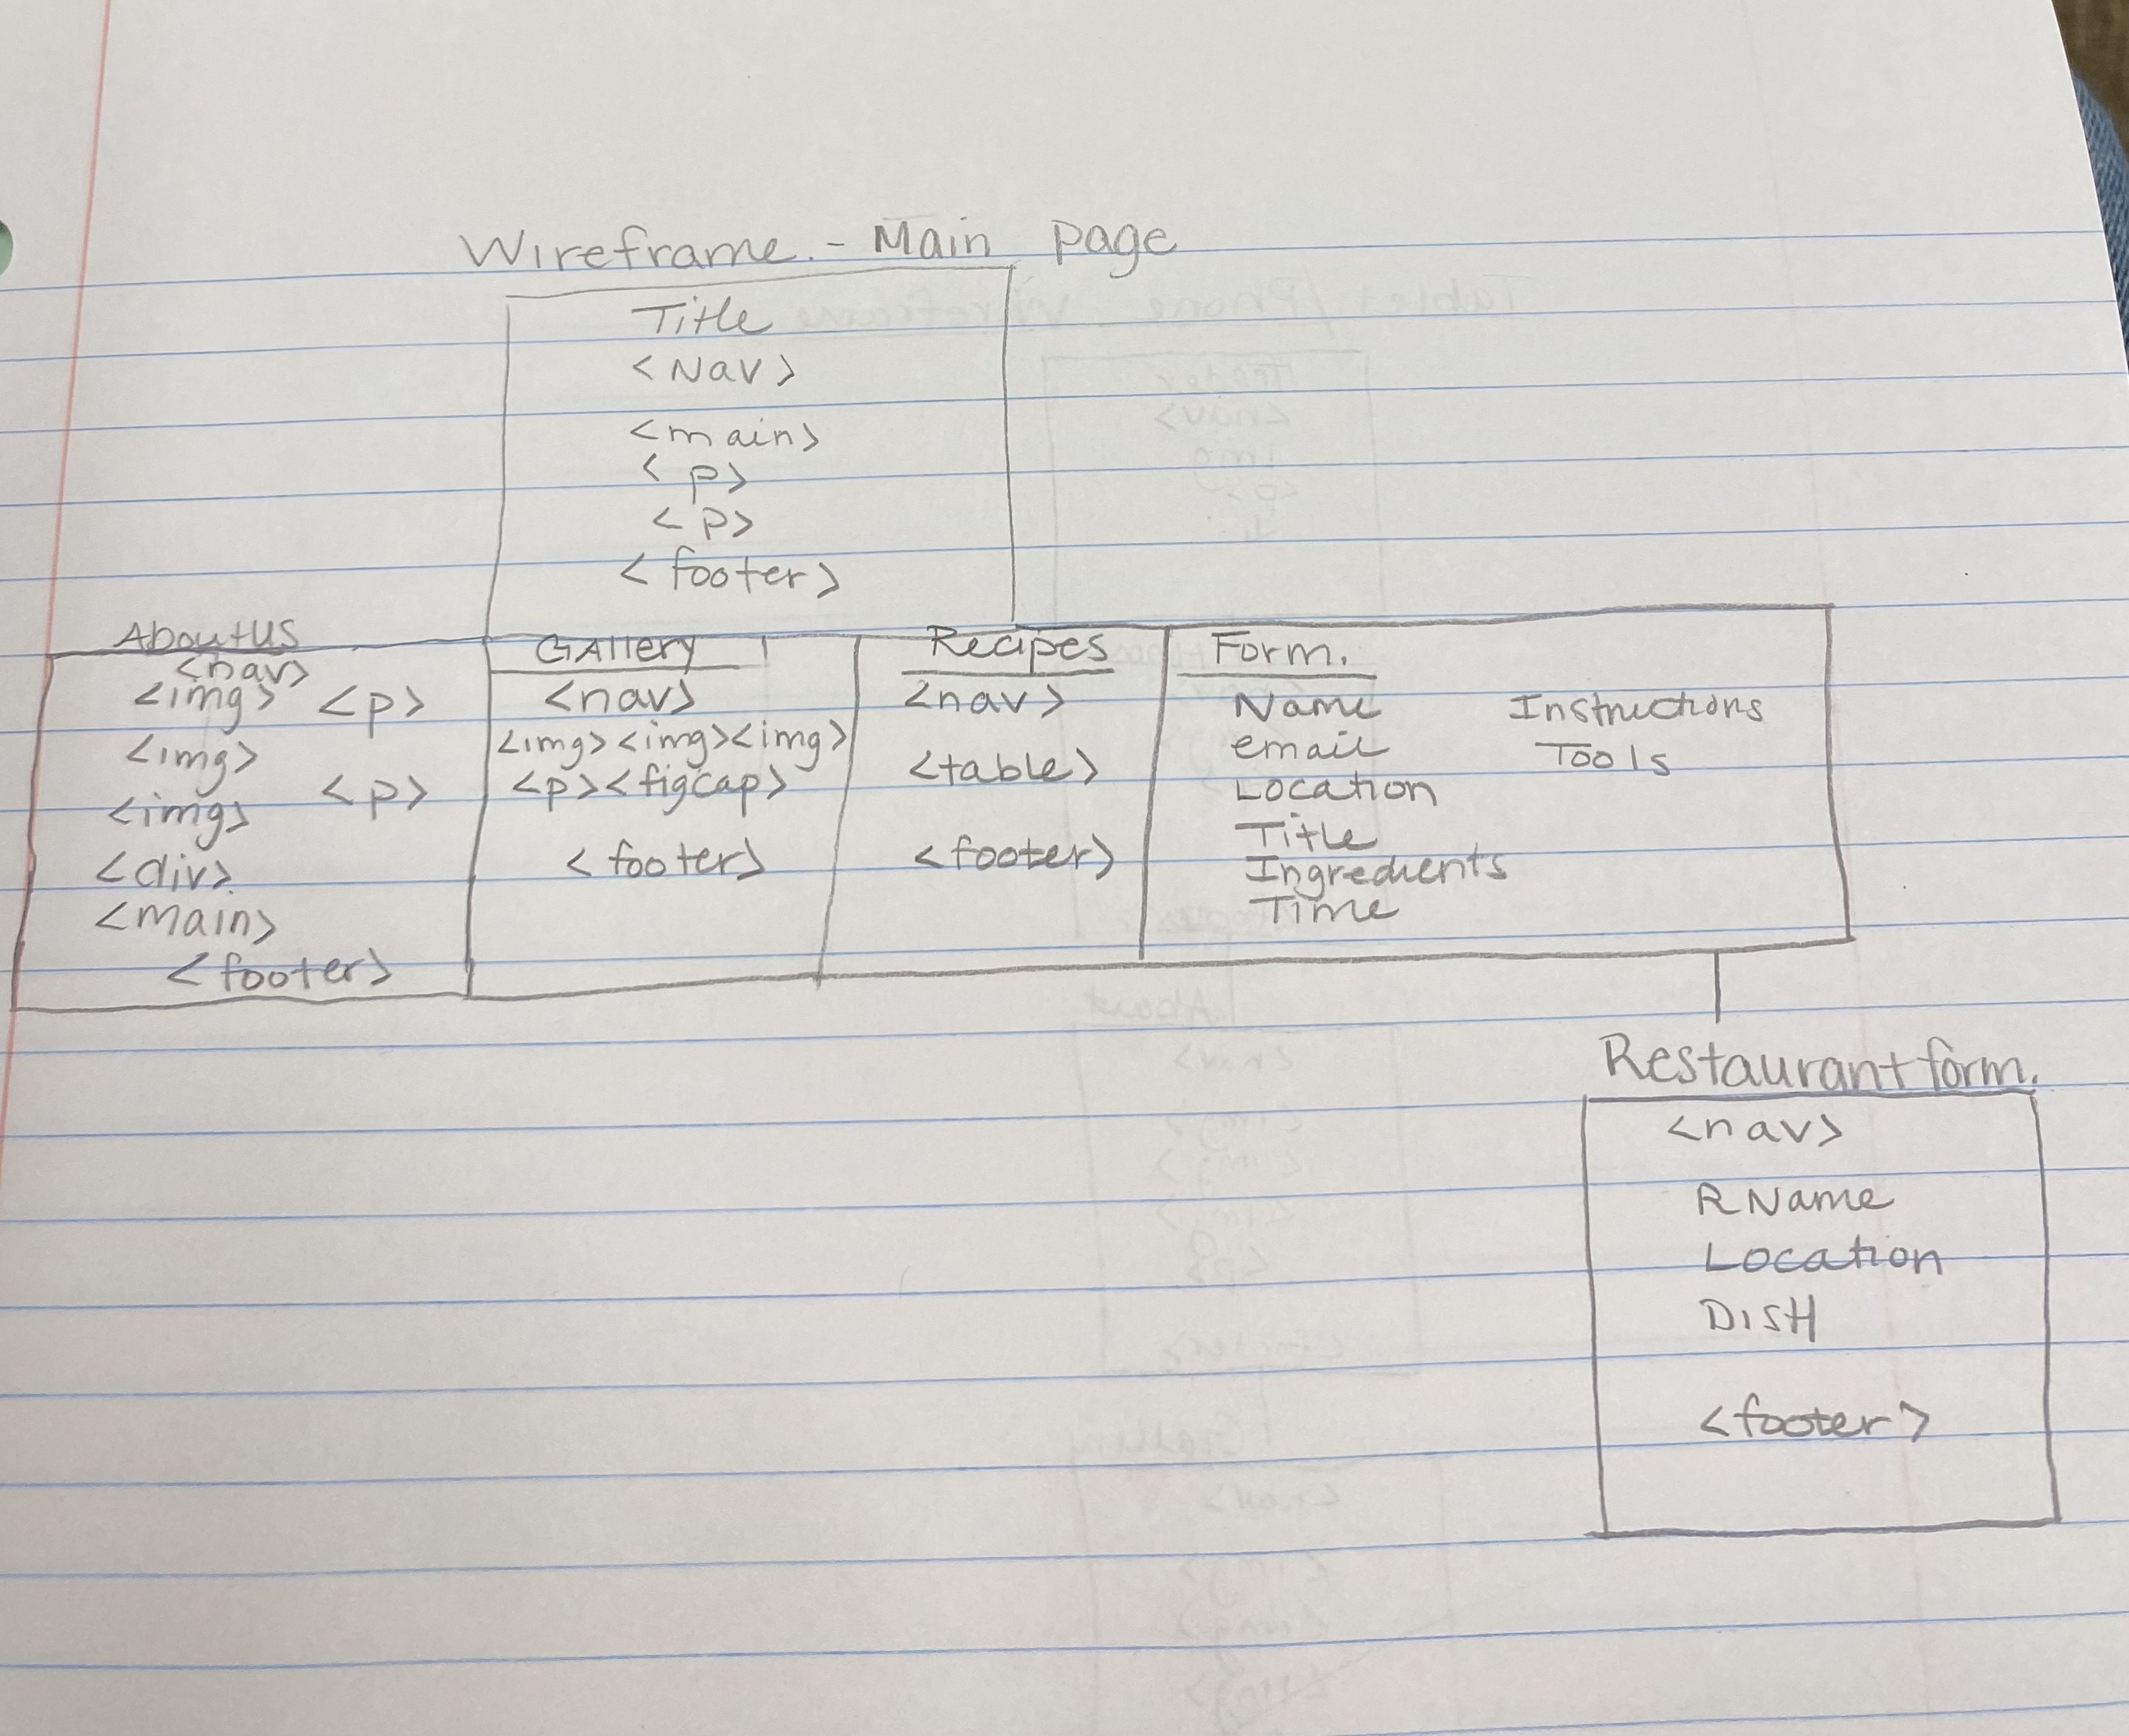 Wireframe. - Main page
Title
<Nav>
<main>
<p>
<p>
<footer>
About US
<nav>
<img> <p>
<img>
<p>
<img>
<div>
<main>
<footer>
GAllery
<nav>
<img><img><img>
<p><figcap>
<footer>
Recipes
<nav>
<table>
<footer>
Form.
Name
email
Location
Title
Ingredients
Time
Instructions
Tools
Restaurant form.
<nav>
R Name
Location
DISH
<footer>